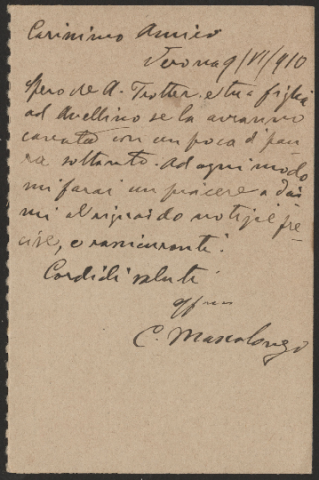 Carissimo Amico
Verona 9/VI/910
Spero che A. Trotter e tua figlia
ad Avellino se la avranno
cavata con un poca di pau
ra soltanto. Ad ogni modo
mi farai un piacere a dar
mi al riguardo notizie pre
cise, e rassicuranti.
Cordiali saluti
C. Massalongo